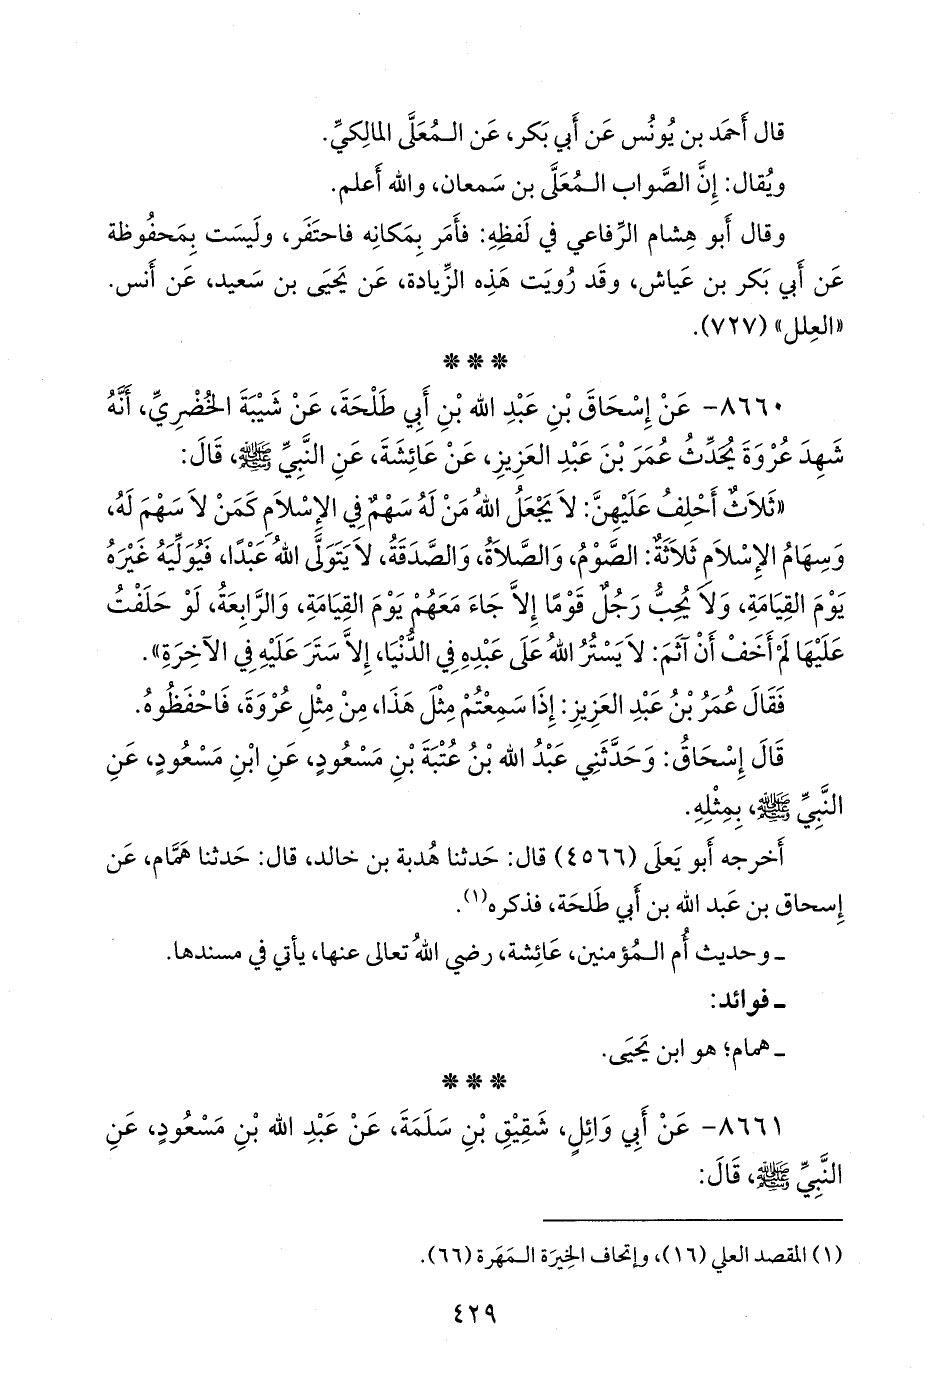 قال أَحمَد بن يُونُس عَن أَبي بَكر، عَن الـمُعَلَّى المالِكيِّ.
ويُقال: إِنَّ الصَّواب الـمُعَلَّى بن سَمعان، والله أَعلم.
وقال أَبو هِشام الرِّفاعي في لَفظِهِ: فأَمَر بِمَكانِه فاحتَفَر، ولَيسَت بِمَحفُوظة
عَن أَبي بَكر بن عَياش، وقَد رُويَت هَذِه الزِّيادة، عَن يَحيَى بن سَعيد، عَن أَنس.
«العِلل» (٧٢٧).
***
٨٦٦٠- عَنْ إِسْحَاقَ بْنِ عَبْدِ الله بْنِ أَبِي طَلْحَةَ، عَنْ شَيْبَةَ الخُضْرِيِّ، أَنَّهُ
شَهِدَ عُرْوَةَ يُحَدِّثُ عُمَرَ بْنَ عَبْدِ العَزِيزِ، عَنْ عَائِشَةَ، عَنِ النَّبِيِّ ﷺ، قَالَ:
«ثَلاَثٌ أَحْلِفُ عَلَيْهِنَّ: لاَ يَجْعَلُ اللهُ مَنْ لَهُ سَهْمٌ فِي الإِسْلاَمِ كَمَنْ لاَ سَهْمَ لَهُ،
وَسِهَامُ الإِسْلاَمِ ثَلاَثَةٌ: الصَّوْمُ، وَالصَّلاَةُ، وَالصَّدَقَةُ، لاَ يَتَوَلَّى اللهُ عَبْدًا، فَيُوَلِّيَهُ غَيْرَهُ
يَوْمَ القِيَامَةِ، وَلاَ يُحِبُّ رَجُلٌ قَوْمًا إِلاَّ جَاءَ مَعَهُمْ يَوْمَ القِيَامَةِ، وَالرَّابِعَةُ، لَوْ حَلَفْتُ
عَلَيْهَا لَمْ أَخَفْ أَنْ آثَمَ: لاَ يَسْتُرُ اللهُ عَلَى عَبْدِهِ فِي الدُّنْيَا، إِلاَّ سَتَرَ عَلَيْهِ فِي الآخِرَةِ».
فَقَالَ عُمَرُ بْنُ عَبْدِ العَزِيزِ: إِذَا سَمِعْتُمْ مِثْلَ هَذَا، مِنْ مِثْلِ عُرْوَةَ، فَاحْفَظُوهُ.
قَالَ إِسْحَاقُ: وَحَدَّثَنِي عَبْدُ الله بْنُ عُتْبَةَ بْنِ مَسْعُودٍ، عَنِ ابْنِ مَسْعُودٍ، عَنِ
النَّبِيِّ ﷺ، بِمِثْلِهِ.
أَخرجه أَبو يَعلَى (٤٥٦٦) قال: حَدثنا هُدبة بن خالد، قال: حَدثنا هَمَّام، عَن
إِسحاق بن عَبد الله بن أَبي طَلحَة، فذكره(١).
ـ وحديث أُم الـمُؤمنين، عَائِشة، رضي اللهُ تعالى عنها، يأتي في مسندها.
ـ فوائد:
ـ همام؛ هو ابن يَحيَى.
***
٨٦٦١- عَنْ أَبِي وَائِلٍ، شَقِيْقِ بْنِ سَلَمَةَ، عَنْ عَبْدِ الله بْنِ مَسْعُودٍ، عَنِ
النَّبِيِّ ﷺ، قَالَ:
(١) المقصد العلي (١٦)، وإتحاف الخِيرَة الـمَهَرة (٦٦).
٤٢٩